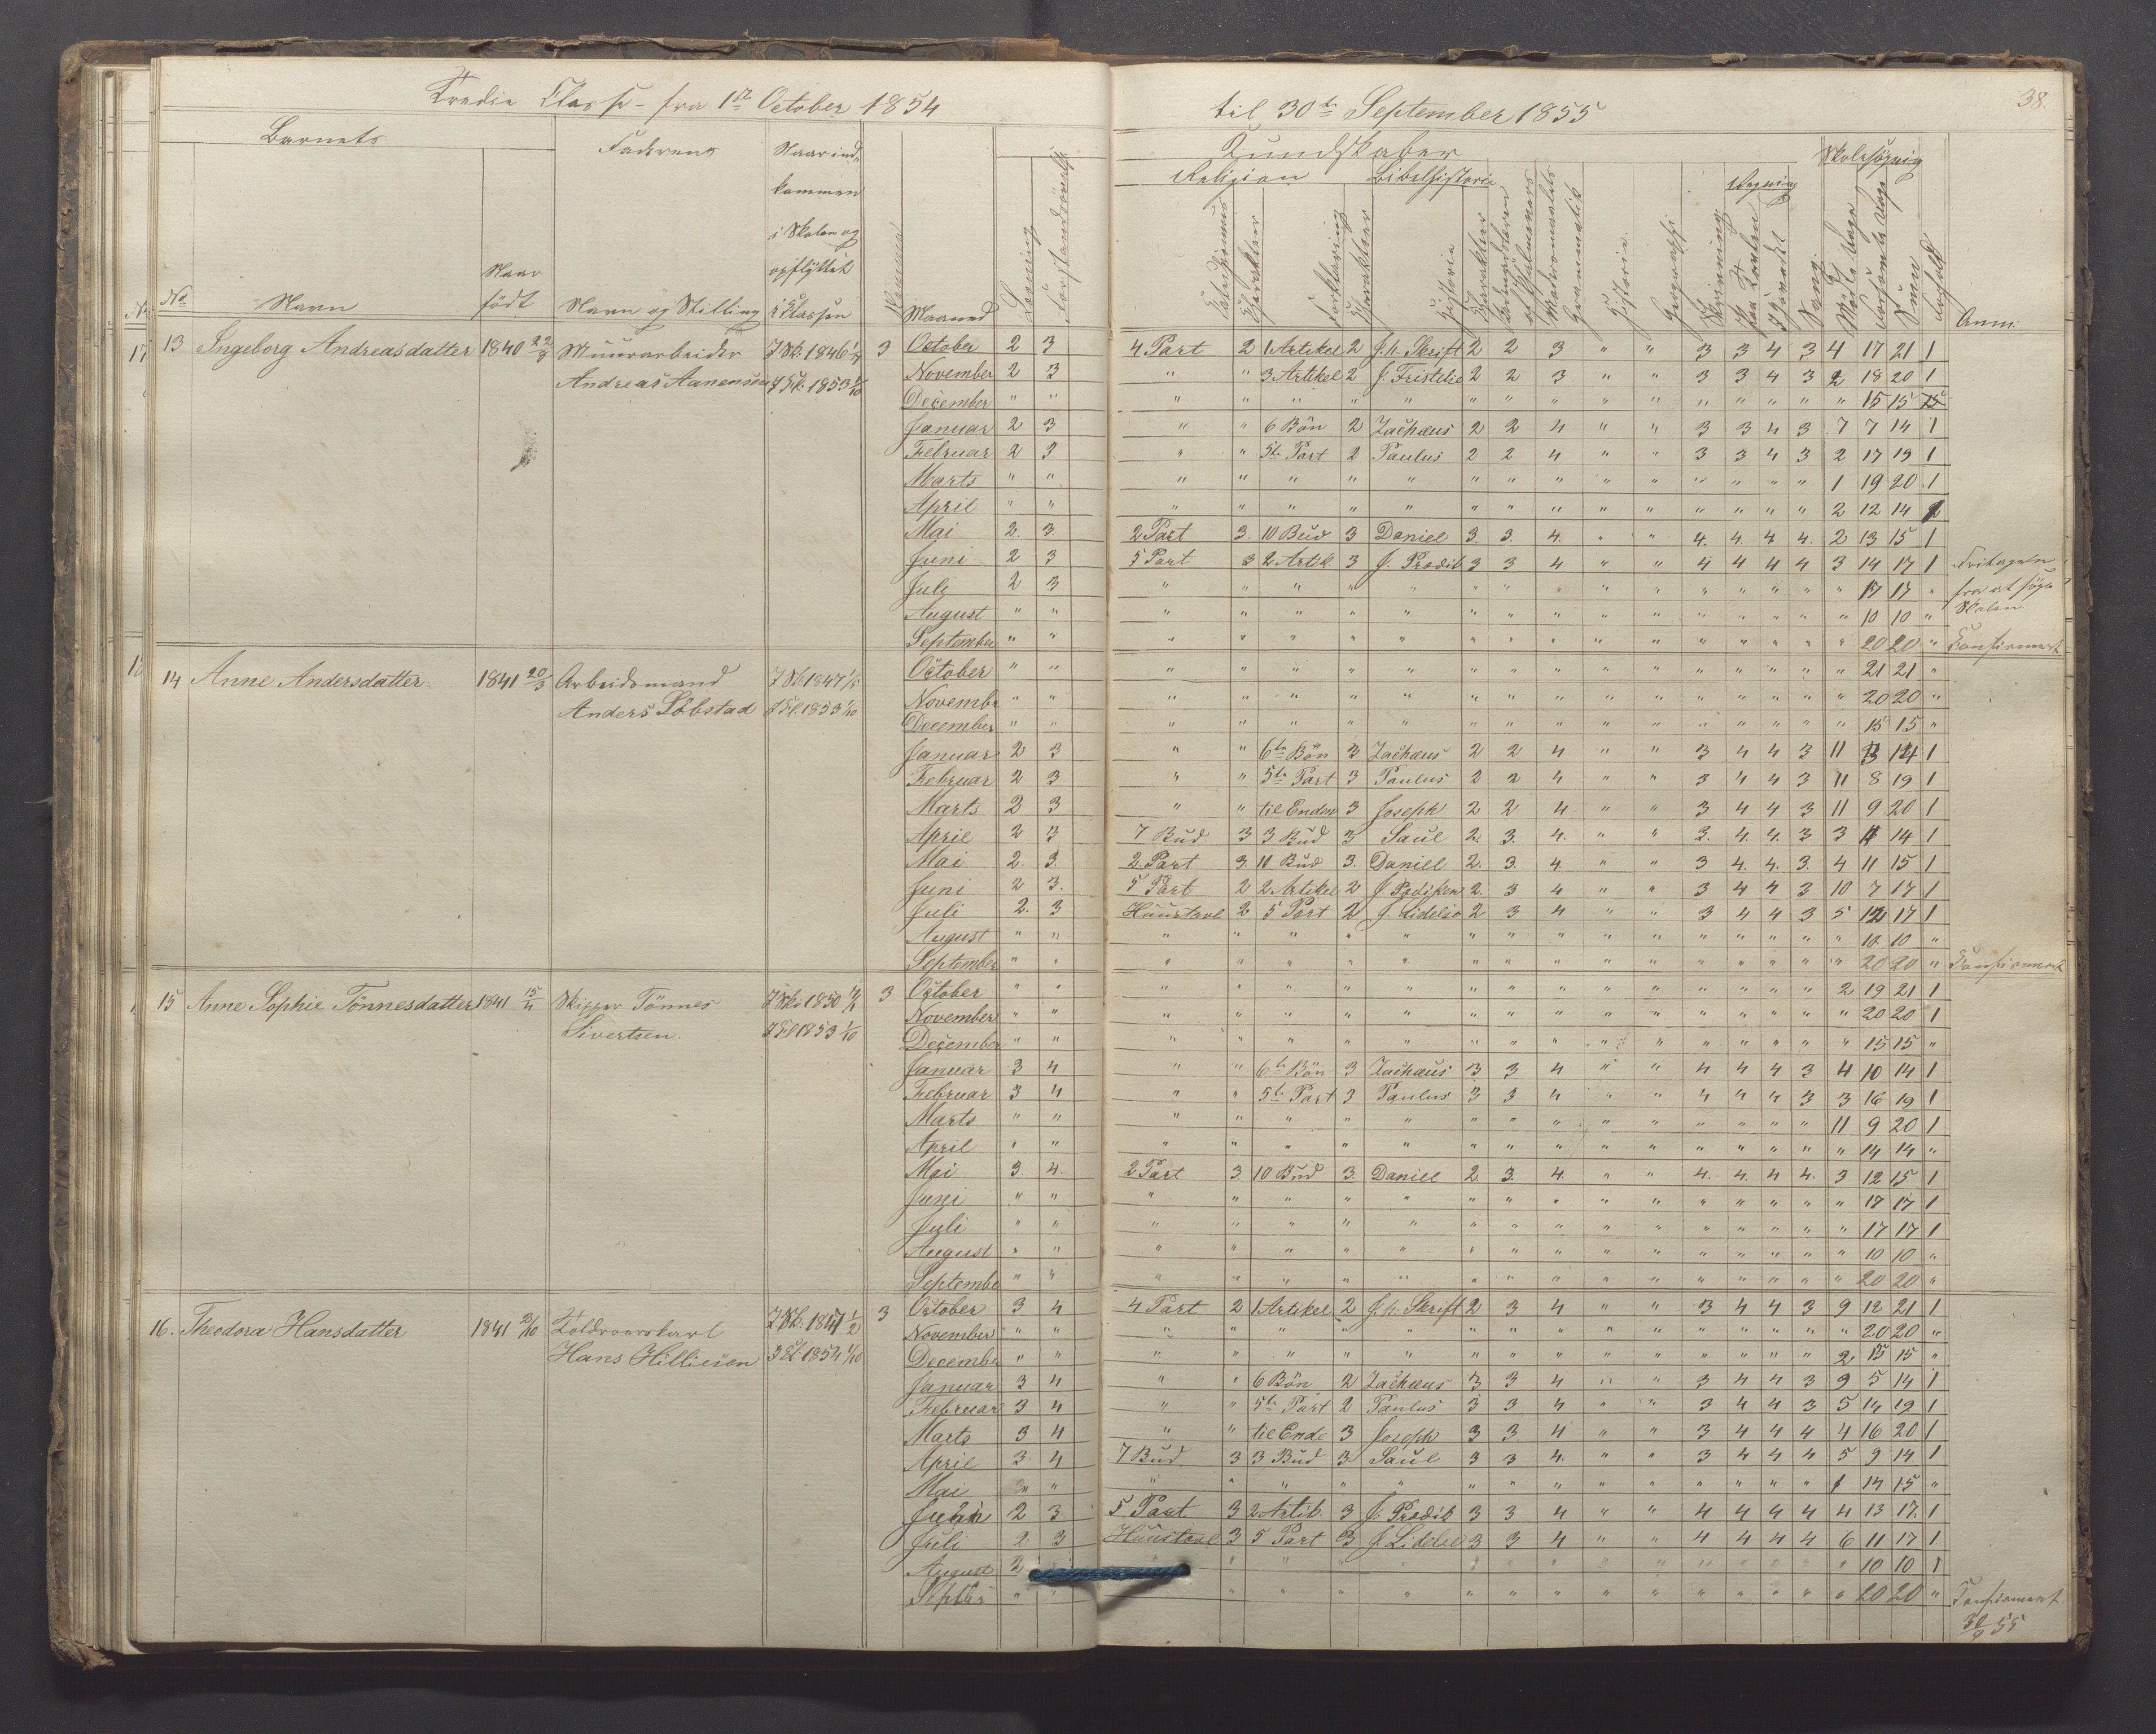 Tredie Classe - fra 1ste October 1854
til 30te September 1855
38.
Barnets
Faderens
Naar ind-
kommen
i Skolen og
opflyttet
i Classen
No
Navn
Naar
født
Navn og Stilling
Maaned
Læsning
Kundskaber
Religion
Bibelhistorie
Skolesøgning
Regning
Catechismus
Charakteer
Forklaring
Charakteer
Historie
Charakteer
Grammatik
Historie
Geographi
Skrivning
Paa Tavlen
I Hovedet
Sang
Mødte Dage
Forsømte Dage
Sum
Forhold
Anm:
13 Ingeborg Andreasdatter 1840 22/8 Muurarbeider
Andreas Aanensen
J Sk. 1846
J Cl. 1853 1/10
3
October 2 3 4 Part 2 1 Artikel 2 J. h. Skrift 2 2 3 " " 3 3 4 3 4 17 21 1
November 2 3 " " 3 Artikel 2 J. Fristelse 2 2 3 " " 3 3 4 3 2 18 20 1
December " " " " " " " " " " " " " " " " " 15 15
Januar 2 3 " " 6 Bön 2 Zachæus 2 2 4 " " 3 3 4 3 7 7 14 1
Februar 2 3 " " 5te Part 2 Paulus 2 2 4 " " 3 3 4 3 2 17 19 1
Marts " " " " " " " " " " " " " " " " 1 19 20 1
April " " " " " " " " " " " " " " " " 2 12 14
Mai 2. 3. 2 Part 3. 10 Bud 3 Daniel 3. 3. 4. " " 4. 4. 4 4. 2 13 15 1
Juni 2 3 5 Part 3 2 Artik 3 J. Prædik 3 3 4 " " 4 4 4 4 3 14 17 1 Fritagen
Juli 2 3 " " " " " " " " " " " " " " " 17 17 " fra at søge
August " " " " " " " " " " " " " " " " " 10 10 " Skolen
September " " " " " " " " " " " " " " " " " 20 20 " Confirmert
14 Anne Andersdatter 1841 20/3 Arbeidsmand
Anders Löbstad
J Sk. 1847 1/5
J Cl. 1853 1/10
October " " " " " " " " " " " " " " " " " 21 21 "
November " " " " " " " " " " " " " " " " " 20 20 "
December " " " " " " " " " " " " " " " " " 15 15 "
Januar 2 3 " " 6te Bön 3 Zachæus 2 2 4 " " 3 4 4 3 11 3 14 1
Februar 2 3 " " 5te Part 3 Paulus 2 2 4 " " 3 4 4 3 11 8 19 1
Marts 2 3 " " til Enden 3 Joseph 2 2 4 " " 3 4 4 3 11 9 20 1
April 2 3 7 Bud 3 3 Bud 3 Saul 2. 3. 4. " " 3. 4. 4. 3 3 11 14 1
Mai 2. 3. 2 Part 3. 10 Bud 3. Daniel 2. 3. 4. " " 3 4. 4. 3. 4 11 15 1
Juni 2 3. 5 Part 2 2 Artikel 2 J. Prædiken 2. 3 4 " " 3 4 4 3 10 7 17 1
Juli 2. 3 Huustavl 2 5 Part 2 J. Lidelse 2 3 4 " " 3 4 4 3 5 12 17 1
August " " " " " " " " " " " " " " " " " 10 10 "
September " " " " " " " " " " " " " " " " " 20 20 " Confirmert
15 Anne Sophie Tönnesdatter 1841 15/4 Skipper Tönnes
Sivertsen.
J Sk. 1850
J Cl 1853 1/10
3
October " " " " " " " " " " " " " " " " 2 19 21 1
November " " " " " " " " " " " " " " " " " 20 20 1
December " " " " " " " " " " " " " " " " " 15 15 "
Januar 3 4 " " 6te Bön 3 Zachæus 3 3 4 " " 4 4 4 3 4 10 14 1
Februar 3 4 " " 5te Part 3 Paulus 3 3 4 " " 4 4 4 3 3 16 19 1
Marts " " " " " " " " " " " " " " " " 11 9 20 1
April " " " " " " " " " " " " " " " " " 14 14 "
Mai 3. 4. 2 Part 3. 10 Bud 3. Daniel 2. 3. 4. " " 4. 4. 4 4. 3 12 15 1
Juni " " " " " " " " " " " " " " " " " 17 17 1
Juli " " " " " " " " " " " " " " " " " 17 17 1
August " " " " " " " " " " " " " " " " " 10 10 "
September " " " " " " " " " " " " " " " " " 20 20 "
16. Theodora Hansdatter 1841 Toldroerskarl
Hans Hilliesen
J Sk. 1847 1/2
3 Cl. 1854 1/10
3
October 3 4 4 Part 2 1 Artikel 2 J. h. Skrift 2 3 4 " " 3 4 4 3 9 12 21 1
November " " " " " " " " " " " " " " " " " 20 20 "
December " " " " " " " " " " " " " " " " 2 15 "
Januar 3 4 " " 6 Bön 2 Zachæus 3 3 4 " " 3 4 4 3 9 5 14 1
Februar 3 4 " " 5te Part 2 Paulus 3 3 4 " " 3 4 4 3 5 14 19 1
Marts 3 4 " " til Ende 3 Joseph 3 3 4 " " 3 4 4 4 4 16 20 1
April 3 4 7 Bud 3 3 Bud 3 Saul 3 3 4. " " 3 4 4 4 5 9 14 1
Mai " " " " " " " " " " " " " " " " 1 14 15 "
Juni 2 3 5 Part 3 2 Artik. 3 J. Prædik 3 3 4 " " 4 4 4 4 4 13 17. 1
Juli 2 3 Huustavl 3 5 Part 3 J. Lidelse 3 3 4 " " 4 4 4 4 6 11 17 1
August 2 " " " " " " " " " " " " " " " 10 10 1
Septbr " " " " " " " " " " " " " " " " 20 20 " Confirmert
30/9 55